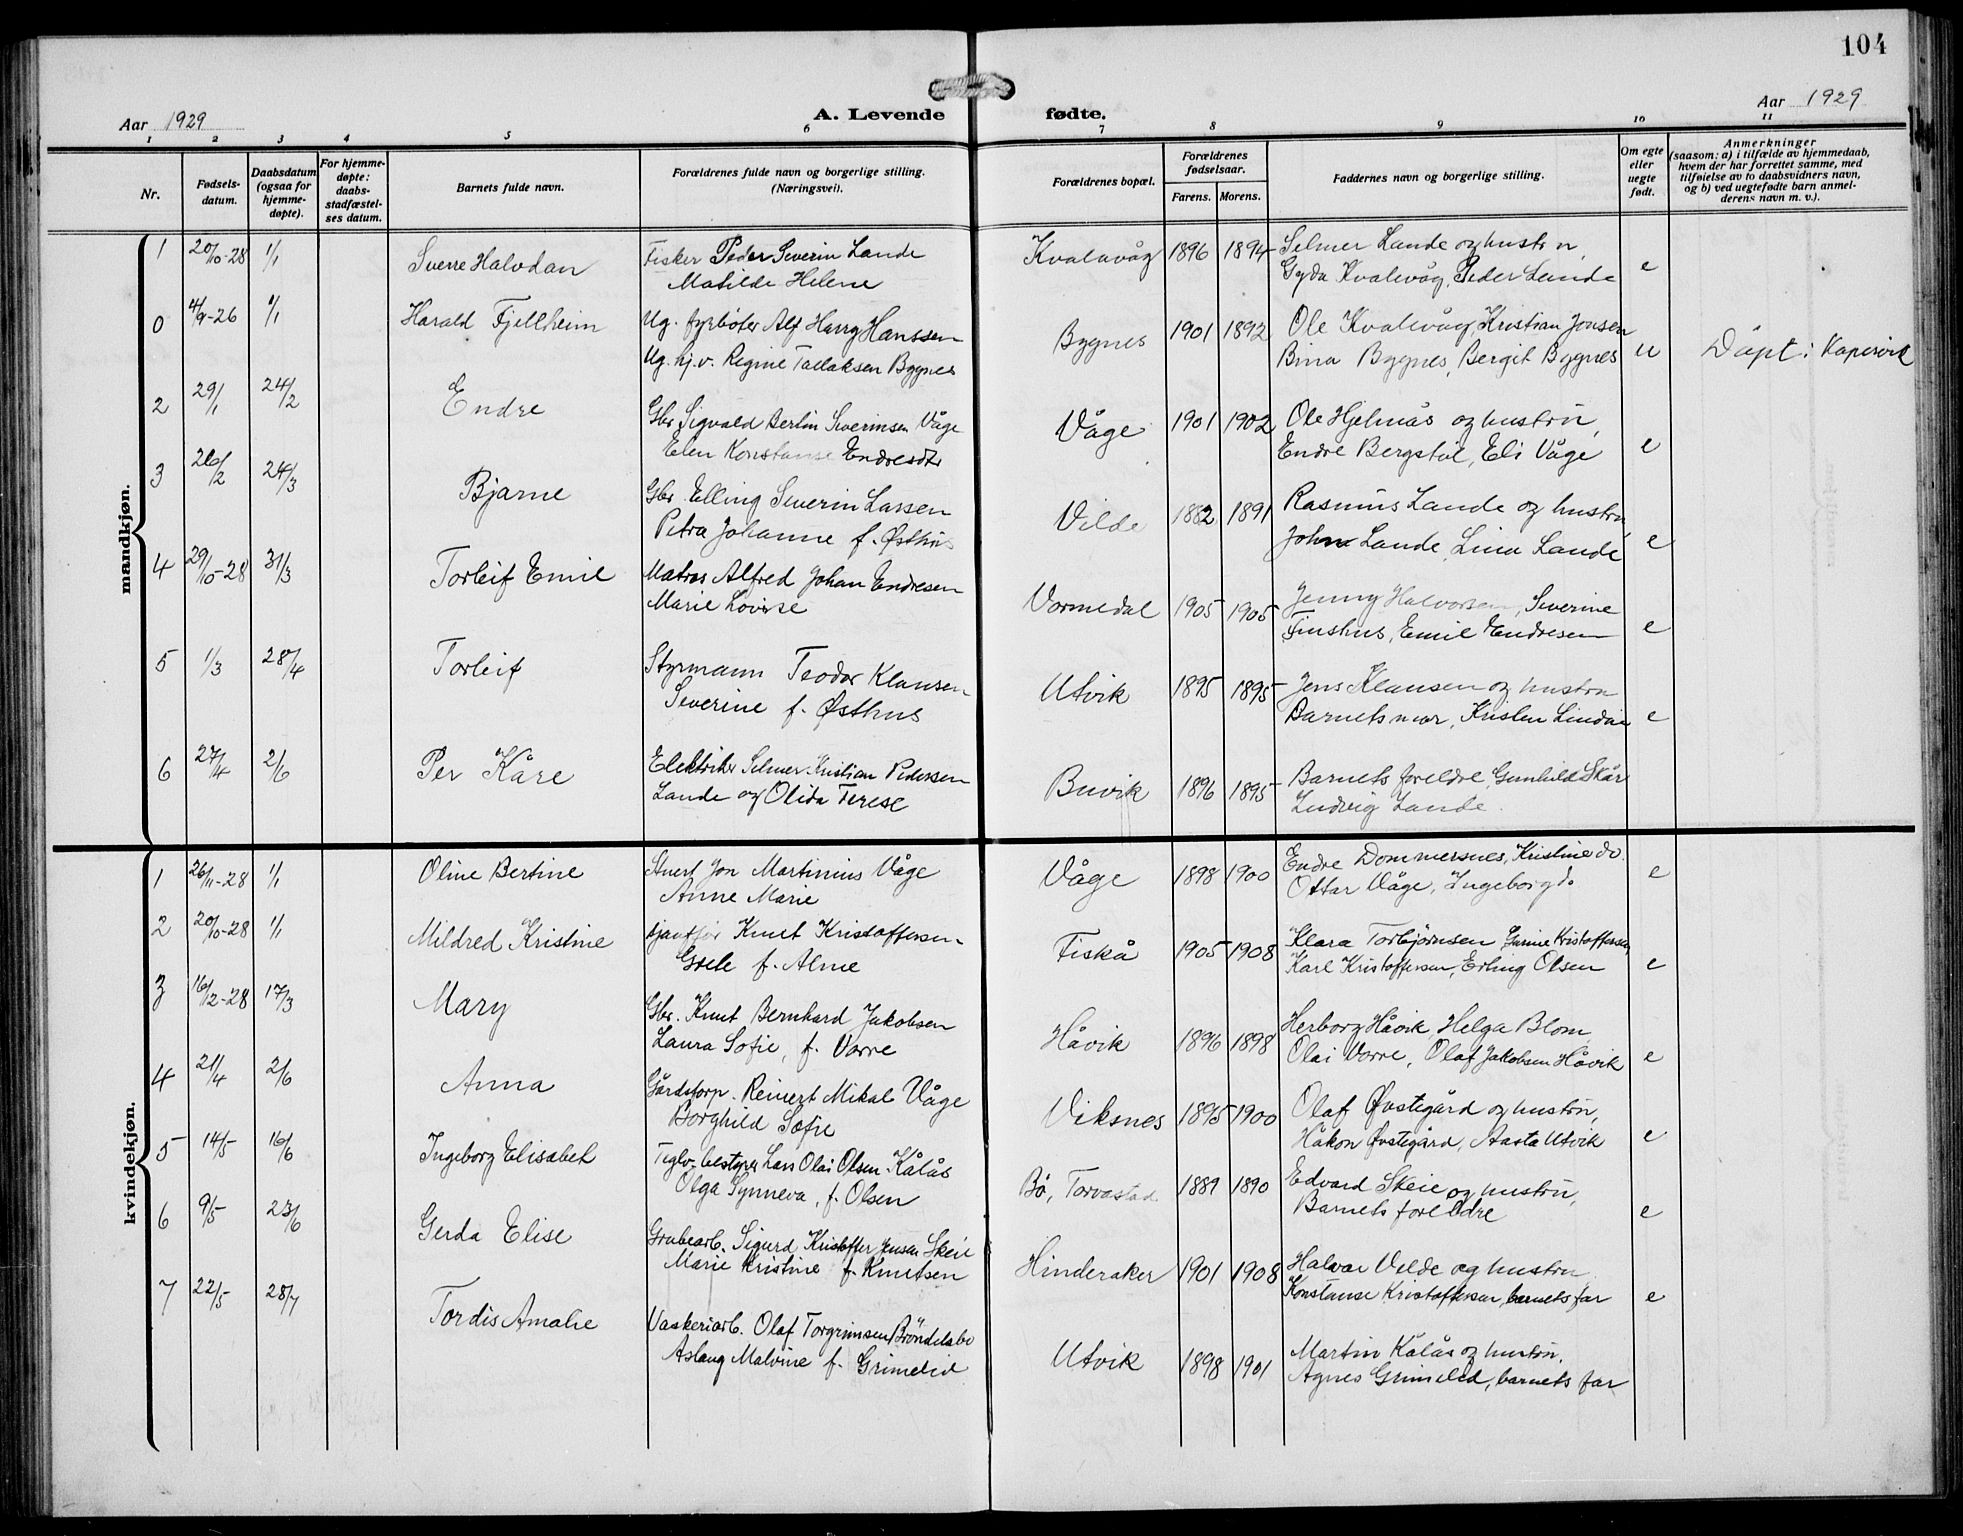 104
Aar 1929
A. Levende fødte.
Aar 1929
1 2 3 4 5 6 7 8 9 10 11
Nr.
Fødsels-
datum.
Daabsdatum
(ogsaa for
hjemme-
døpte).
For hjemme-
døpte:
daabs-
stadfæstel-
ses datum.
Barnets fulde navn.
Forældrenes fulde navn og borgerlige stilling.
(Næringsvei).
Forældrenes bopæl.
Forældrenes
fødselsaar.
Farens. Morens.
Faddernes navn og borgerlig stilling.
Om egte
eller
uegte
født.
Anmerkninger
(saasom: a) i tilfælde av hjemmedaab,
hvem der har forrettet samme, med
tilføielse av to daabsvidners navn,
og b) ved uegtefødte barn anmel-
derens navn m. v.).
mandkjøn.
1 20/10-28 1/1 Sverre Halvdan Fisker Peder Severin Lande Kvalavåg 1896 1894 Selmer Lande og hustru,
Matilde Helene Gyda Kvalevåg, Peder Lande e
0 4/9-26 1/1 Harald Fjellheim Ug. fyrbøter Alf Harry Hanssen Bygnes 1901 1892 Ole Kvalevåg, Kristian Jonsen
Ug. hj.v. Regine Tallaksen Bygnes Bina Bygnes, Bergit Bygnes u Døpt i Kopervik
2 29/1 24/2 Endre Gbr. Sigvald Bertin Severinsen Våge Våge 1901 1902 Ole Hjelmås og hustru,
Elen Konstanse Endresdtr Endre Bergstøl, Eli Våge e
3 26/2 24/3 Bjarne Gbr. Elling Severin Larsen Vilde 1882 1891 Rasmus Lande og hustru,
Petra Johanne f. Østhus John Lande, Lina Lande e
4 29/10-28 31/3 Torleif Emil Matros Alfred Johan Endresen Vormedal 1905 1905 Jenny Halvorsen, Severine
Marie Lovise Tinshus, Emil Endresen e
5 1/3 28/4 Torleif Styrmann Teodor Klausen Utvik 1895 1895 Jens Klausen og hustru
Severine f. Østhus Barnets mor, Kristen e
6 27/4 2/6 Per Kåre Elektriker Selmer Kristian Pedersen Buvik 1896 1895 Barnets foreldre, Gunhild Skår
Lande og Olida Terese Ludvig Lande.
kvindekjøn.
1 26/11-28 1/1 Oline Bertine Stuert Jon Martinius Våge Våge 1898 1900 Endre Dommersnes, Kristine do.
Anne Marie Ottar Våge, Ingeborg do. e
2 20/10-28 1/1 Mildred Kristine Knut Kristoffersen Fiskå 1905 1908 Klara Torbjørnsen, Gurine Kristoffersen,
Grete f. Alme Karl Kristoffersen, Erling Olsen e
3 16/12-28 17/3 Mary Gbr. Knut Bernhard Jakobsen Håvik 1896 1898 Herborg Håvik, Helga Blom,
Laura Sofie, f. Vorre Olai Vorre, Olaf Jakobsen Håvik e
4 21/4 2/6 Anna Gårdsforp. Reinert Mikal Våge Viksnes 1895 1900 Olaf Øvstegård og hustru,
Borghild Sofie Håkon Øvstegård, Aasta Utvik e
5 14/5 16/6 Ingeborg Elisabet Teglv. bestyrer Lars Olai Olsen Kålås Bø, Torvastad 1889 1890 Edvard Skeie og hustru,
Olga Synneva, f. Olsen Barnets foreldre e
6 9/5 23/6 Gerda Elise Grubearb. Sigurd Kristoffer Jensen Skeie Hinderaker 1901 1908 Halvor Velde og hustru
Marie Kristine f. Knutsen Konstanse Kristoffersen, barnets far e
7 22/5 28/7 Tordis Amalie Vaskeriarb. Olaf Torgrimsen Brøndelsbo Utvik 1898 1901 Martin Kålås og hustru,
Aslaug Malvine f. Grimelid Agnes Grimelid, barnets far